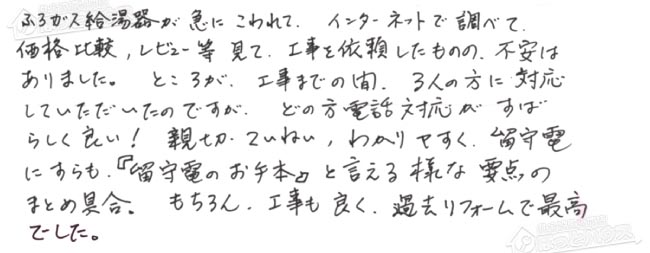 ふろガス給湯器が急にこわれて、インターネットで調べて、
価格比較,レビュー等見て、工事を依頼したものの、不安は
ありました。ところが、工事までの間、3人の方に対応
していただいたのですが、どの方電話対応がすば
らしく良い！親切、ていねい,わかりやすく、留守電
にすらも、『留守電のお手本』と言える様な要点の
まとめ具合。もちろん、工事も良く、過去リフォームで最高
でした。